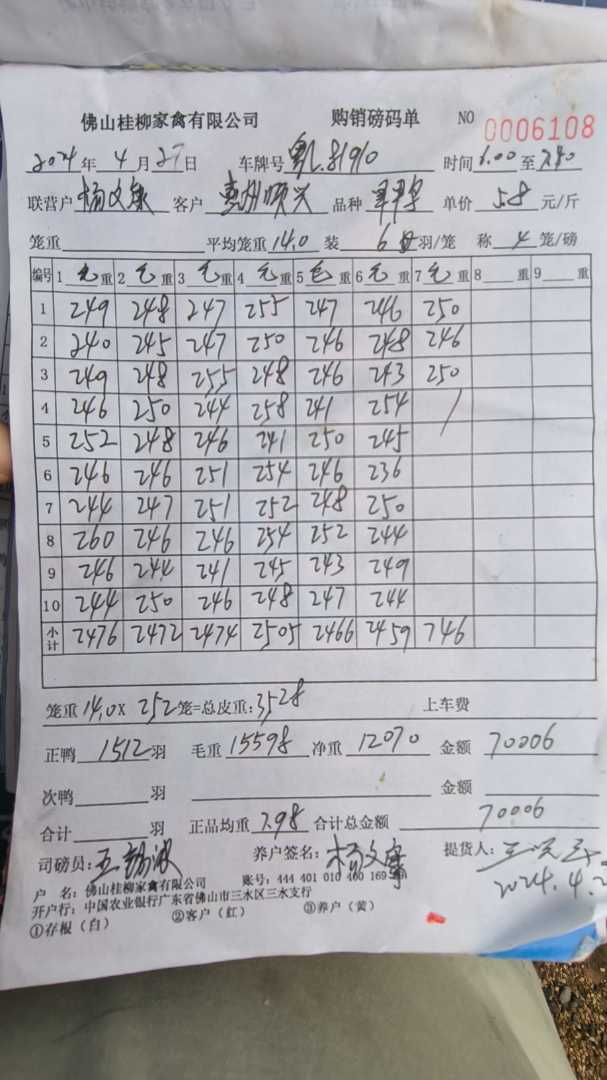 佛山桂柳家禽有限公司 购销磅码单 NO 0006108
2024年 4月27日 车牌号 81910 时间 6.00 至 7.40
联营户 杨文 客户 惠州顺兴 品种 单价 5.8 元/斤
笼重 平均笼重 14.0 装 6 羽/笼 称 4 笼/磅
编号 1 毛 重 2 毛 重 3 毛 重 4 毛 重 5 毛 重 6 毛 重 7 毛 重 8 重 9 重
1 249 248 247 255 247 246 250
2 240 245 247 250 246 248 246
3 249 248 255 248 246 243 250
4 246 250 244 258 241 254 /
5 252 248 246 241 250 245
6 246 246 251 254 246 236
7 244 247 251 252 248 250
8 260 246 246 254 252 244
9 246 244 241 245 243 249
10 244 250 246 248 247 244
小计 2476 2472 2474 2505 2466 2459 746
笼重 14.0 X 252 笼=总皮重: 3528 上车费
正鸭 1512 羽 毛重 15598 净重 12070 金额 70006
次鸭 羽 金额
合计 羽 正品均重 7.98 合计总金额 70006
司磅员: 养户签名: 杨文 提货人:
2024.4.2
户 名: 佛山桂柳家禽有限公司 账号: 444 401 010 400 169
开户行: 中国农业银行广东省佛山市三水区三水支行
①存根（白） ②客户（红） ③养户（黄）